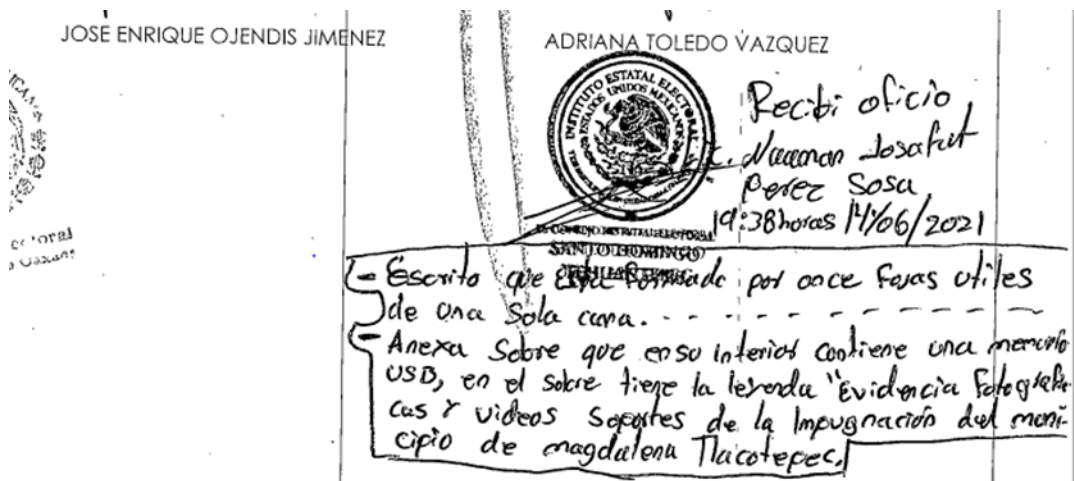 JOSE ENRIQUE OJENDIS JIMENEZ
ADRIANA TOLEDO VAZQUEZ
INSTITUTO ESTATAL ELECTORAL
ESTADOS UNIDOS MEXICANOS
Recibi oficio
C. Naaman Josafat
Perez Sosa
19:38 horas 14/06/2021
SANTO DOMINGO
- Escrito que esta formado por once fojas utiles
de una sola cara. - - - - - - - - - - - -
- Anexa Sobre que en su interior contiene una memoria
USB, en el sobre tiene la leyenda "Evidencia Fotografi-
cas y videos Soportes de la Impugnación del muni-
cipio de magdalena Tlacotepec.